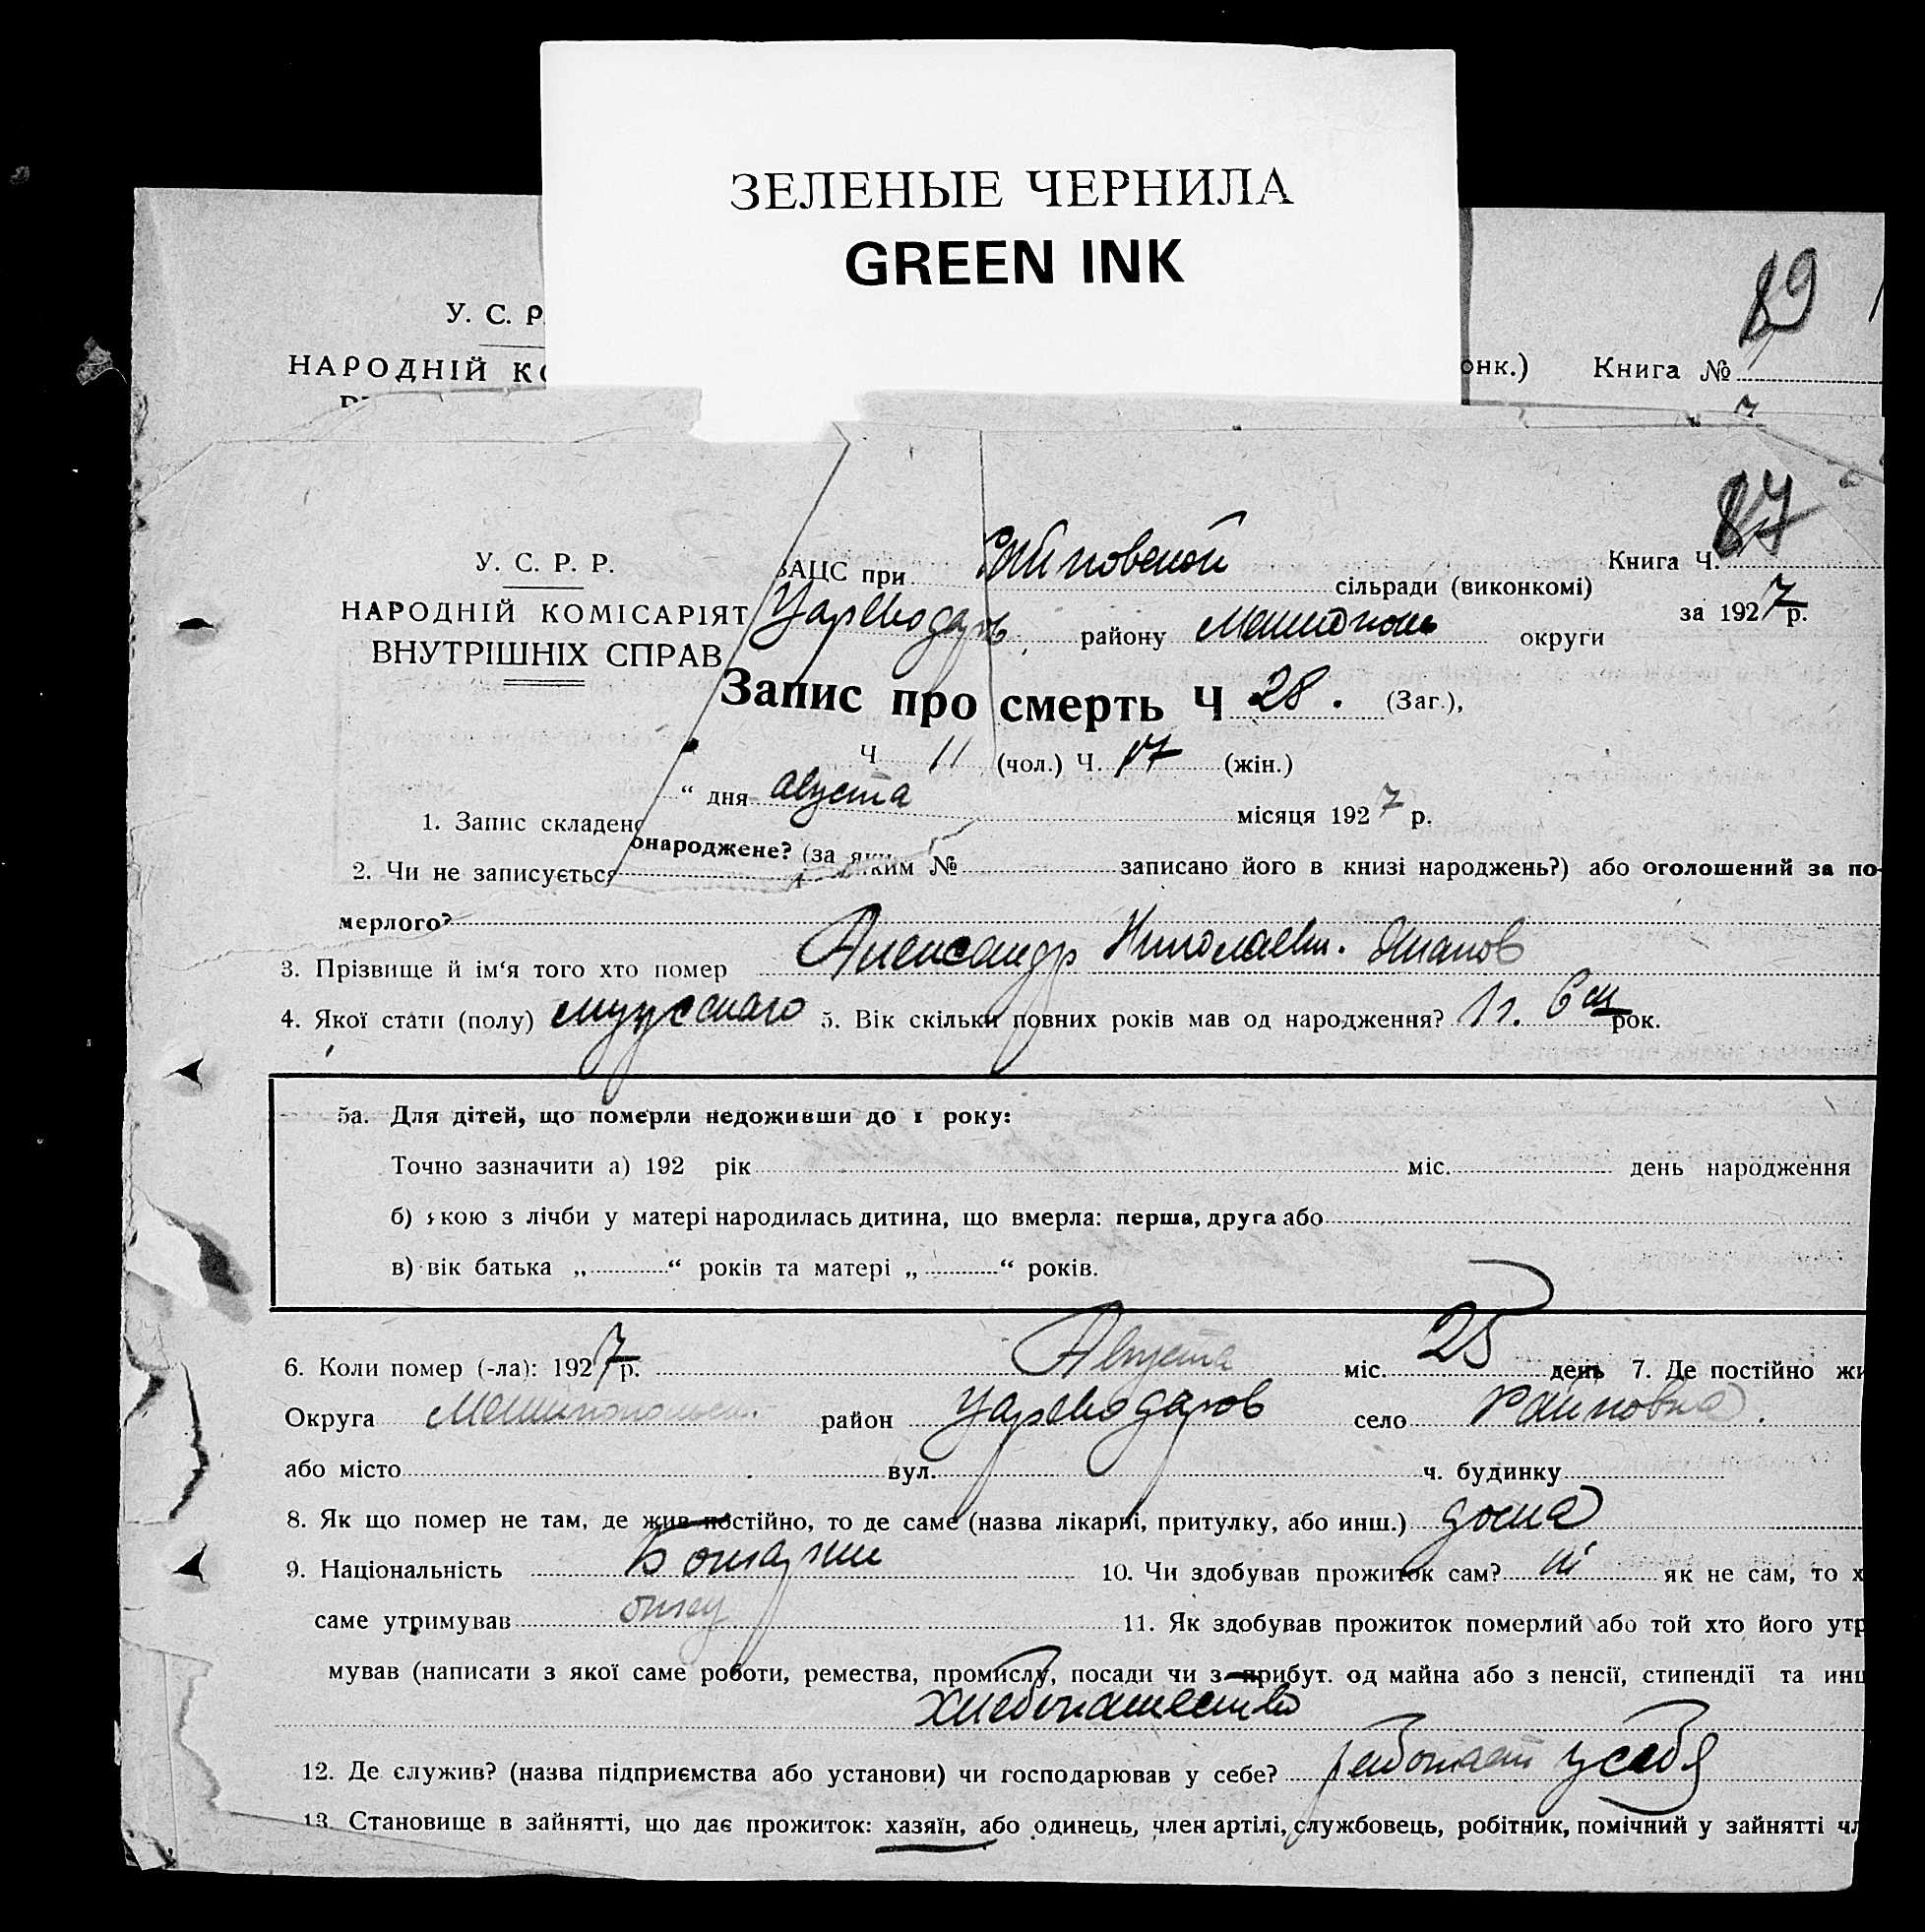 ЗЕЛЕНЫЕ ЧЕРНИЛА
GREEN INK
89
У. С. Р.
НАРОДНІЙ К
онк.) Книга №
87
У. С. Р. Р.
НАРОДНІЙ КОМІСАРІЯТ
ВНУТРІШНІХ СПРАВ
ЗАЦС при Райновской сільради (виконкомі) Книга Ч.
Цареводаров району округи за 1927 р.
Запис про смерть Ч 28. (Заг.),
Ч 11 (чол.) Ч. 17 (жін.)
1. Запис складено “ дня августа місяця 1927 р.
2. Чи не записується онароджене? (за яким № записано його в книзі народжень?) або оголошений за по-
мерлого?
3. Прізвище й ім‘я того хто помер Александр Николаевич.
4. Якої стати (полу) мужскаго 5. Вік скільки повних років мав од народження? 1 г. 6 м рок.
5а. Для дітей, що померли недоживши до 1 року:
Точно зазначити а) 192 рік міс. день народження
б) якою з лічби у матері народилась дитина, що вмерла: перша, друга або
в) вік батька „ “ років та матері „ “ років.
6. Коли помер (-ла): 1927 р. Августа міс. 25 день 7. Де постійно жи
Округа район Цареводаров село Райновка.
або місто вул. ч. будинку
8. Як що помер не там, де жив постійно, то де саме (назва лікарні, притулку, або инш.) дома
9. Національність Болгарин 10. Чи здобував прожиток сам? ні як не сам, то х
саме утримував отец 11. Як здобував прожиток померлий або той хто його утр
мував (написати з якої саме роботи, ремества, промислу, посади чи з прибут. од майна або з пенсії, стипендії та инш
хлебопашество
12. Де служив? (назва підприємства або установи) чи господарював у себе? работает у себя
13. Становище в зайнятті, що дає прожиток: хазяїн, або одинець, член артілі, службовець, робітник, помічний у зайнятті чл